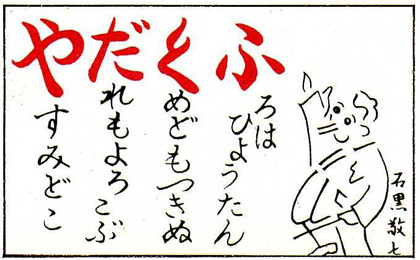 ふろはひようたん
くめどもつきぬ
だれもよろこぶ
やすみどこ
石黒敬七